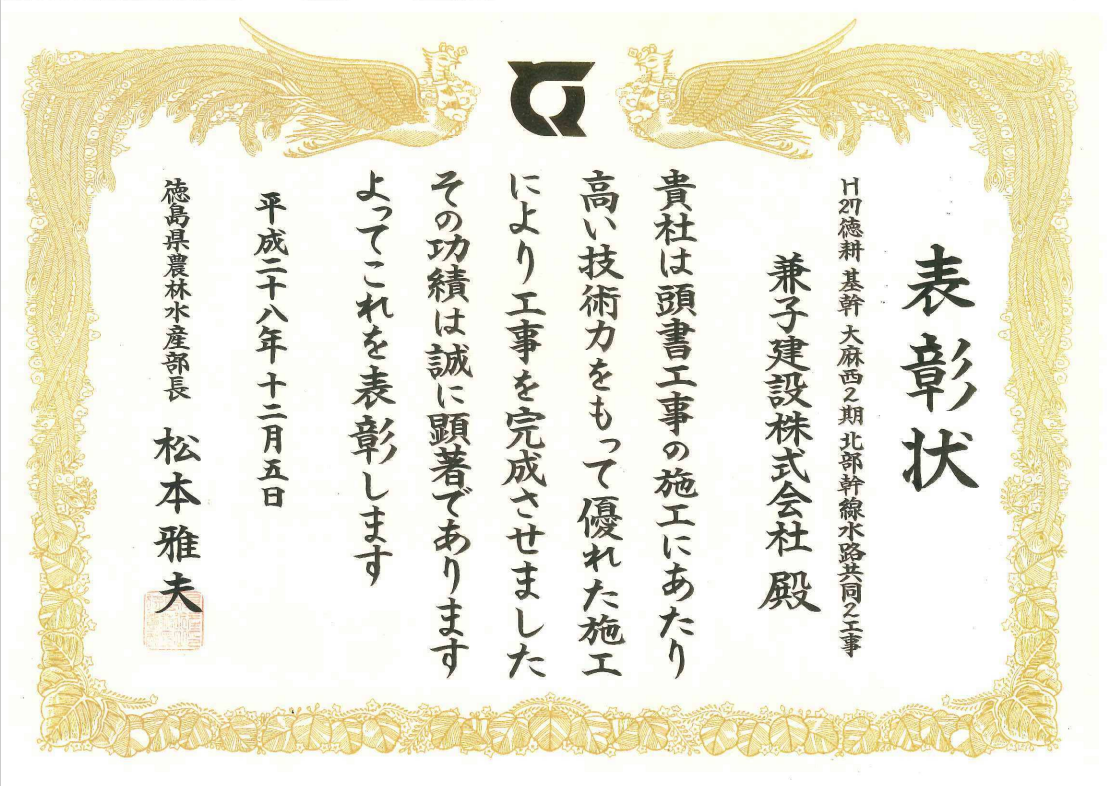 表彰状
H27徳耕 基幹 大麻西2期 北部幹線水路共同2工事
兼子建設株式会社 殿
貴社は頭書工事の施工にあたり
高い技術力をもって優れた施工
により工事を完成させました
その功績は誠に顕著であります
よってこれを表彰します
平成二十八年十二月五日
徳島県農林水産部長 松本雅夫